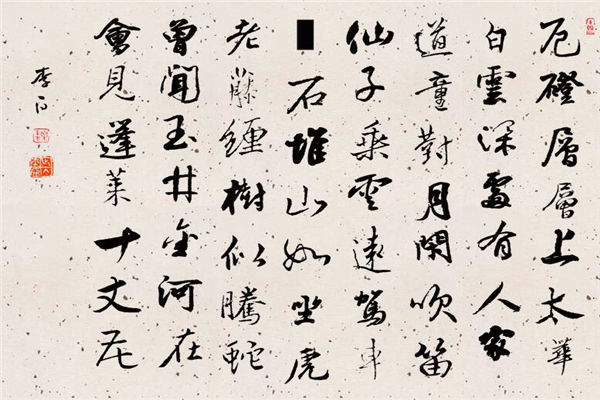 危磴層層上太華
白雲深處有人家
道童對月閑吹笛
仙子乘雲遠駕車
石堆山如坐虎
老藤纏樹似騰蛇
曾聞玉井金河在
會見蓬萊十丈花
李